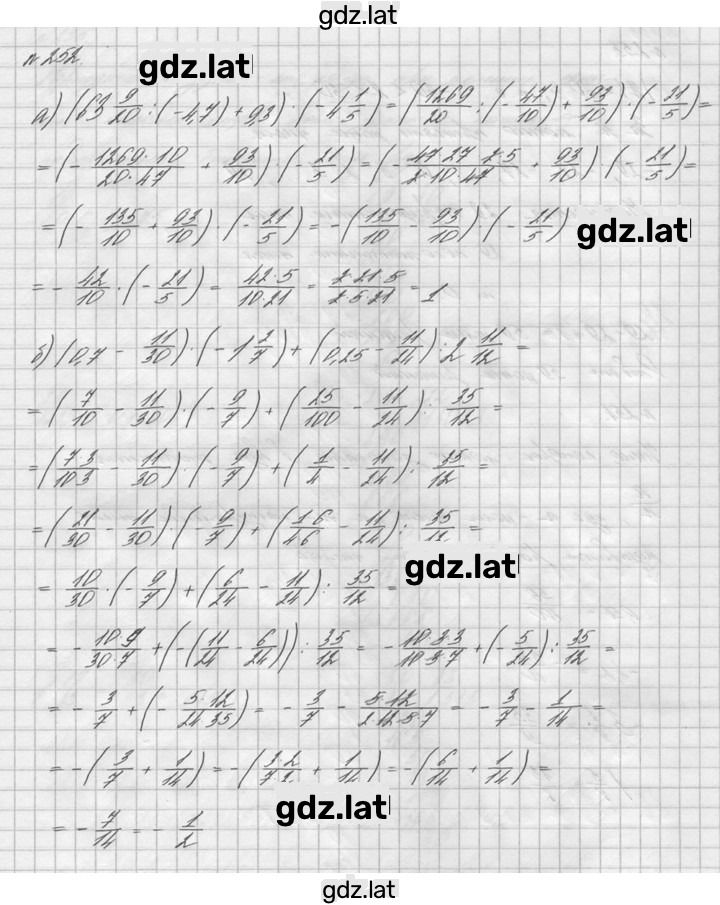 gdz.lat
№252.
gdz.lat
а) (63 9/20 : (-4,7) + 9,3) · (-4 1/5) = (1269/20 : (-47/10) + 93/10) · (-21/5) =
= (- 1269·10/20·47 + 93/10) · (-21/5) = (- 47·27·2·5/2·10·47 + 93/10) · (-21/5) =
= (- 135/10 + 93/10) · (-21/5) = -(135/10 - 93/10) · (-21/5)
gdz.lat
= - 42/10 · (-21/5) = 42·5/10·21 = 2·21·5/2·5·21 = 1
б) (0,7 - 11/30) · (-1 2/7) + (0,25 - 11/24) : 2 11/12 =
= (7/10 - 11/30) · (-9/7) + (25/100 - 11/24) : 35/12 =
= (7·3/10·3 - 11/30) · (-9/7) + (1/4 - 11/24) : 35/12 =
= (21/30 - 11/30) · (-9/7) + (1·6/4·6 - 11/24) : 35/12 =
gdz.lat
= 10/30 · (-9/7) + (6/24 - 11/24) : 35/12 =
= - 10·9/30·7 + (-(11/24 - 6/24)) : 35/12 = - 10·3·3/10·3·7 + (-5/24) : 35/12 =
= - 3/7 + (- 5·12/24·35) = - 3/7 - 5·12/2·12·5·7 = - 3/7 - 1/14 =
= -(3/7 + 1/14) = -(3·2/7·2 + 1/14) = -(6/14 + 1/14) =
gdz.lat
= - 7/14 = - 1/2
gdz.lat